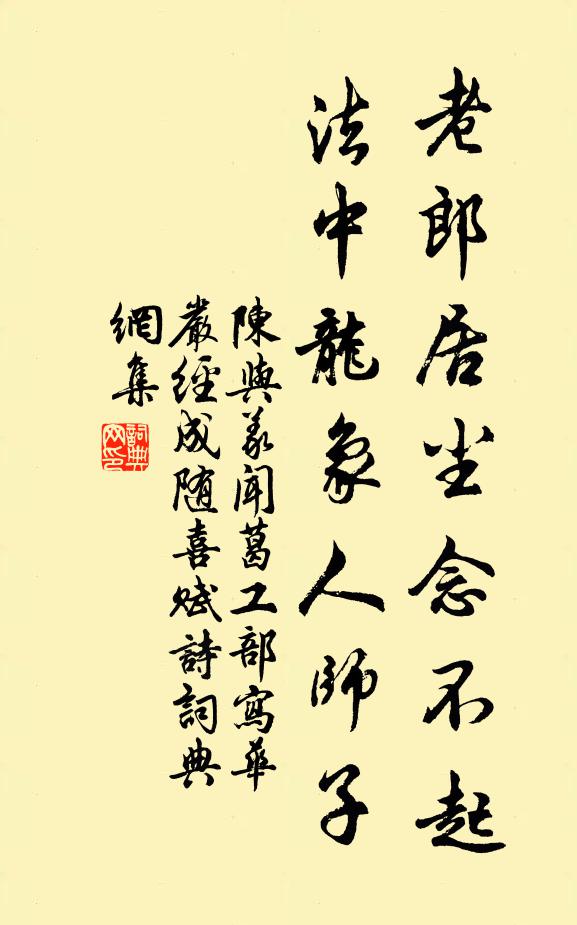 老郎居尘念不起
法中龍象人師子
陳與義聞葛工部寫華
嚴經成随喜赋詩詞典
網集
詞典
网印